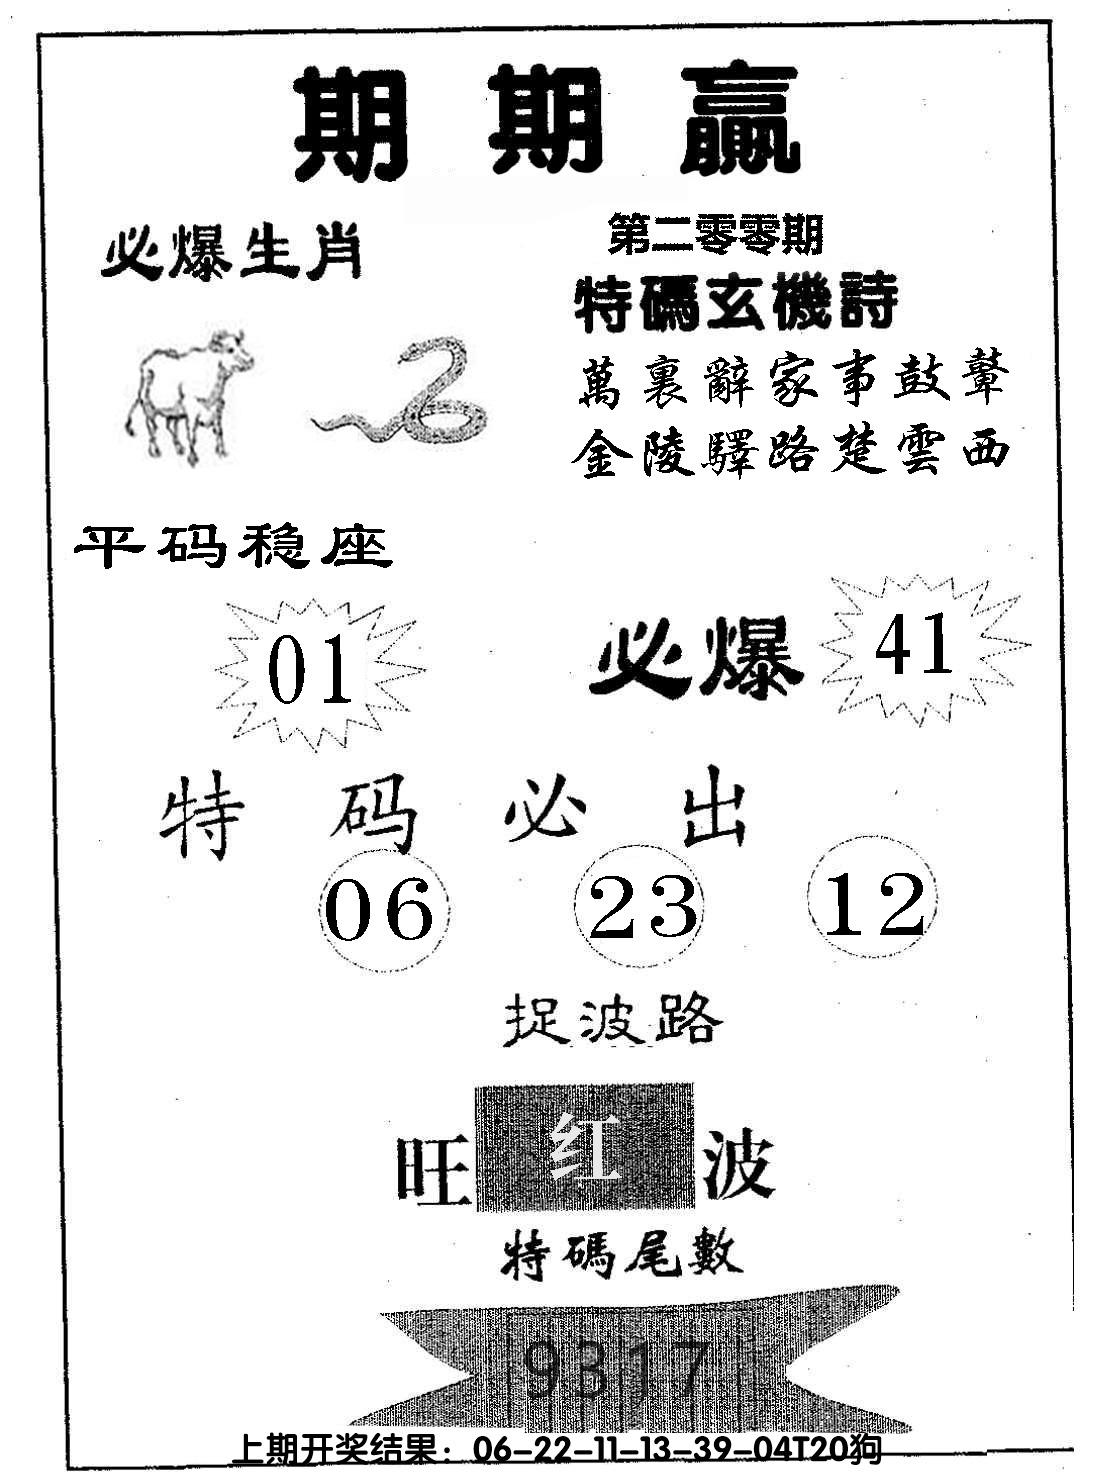 期期贏
必爆生肖
第二零零期
特碼玄機詩
萬裏辭家事鼓鼙
金陵驛路楚雲西
平码稳座
01
必爆 41
特码必出
06 23 12
捉波路
旺红波
特碼尾數
9317
上期开奖结果：06-22-11-13-39-04T20狗